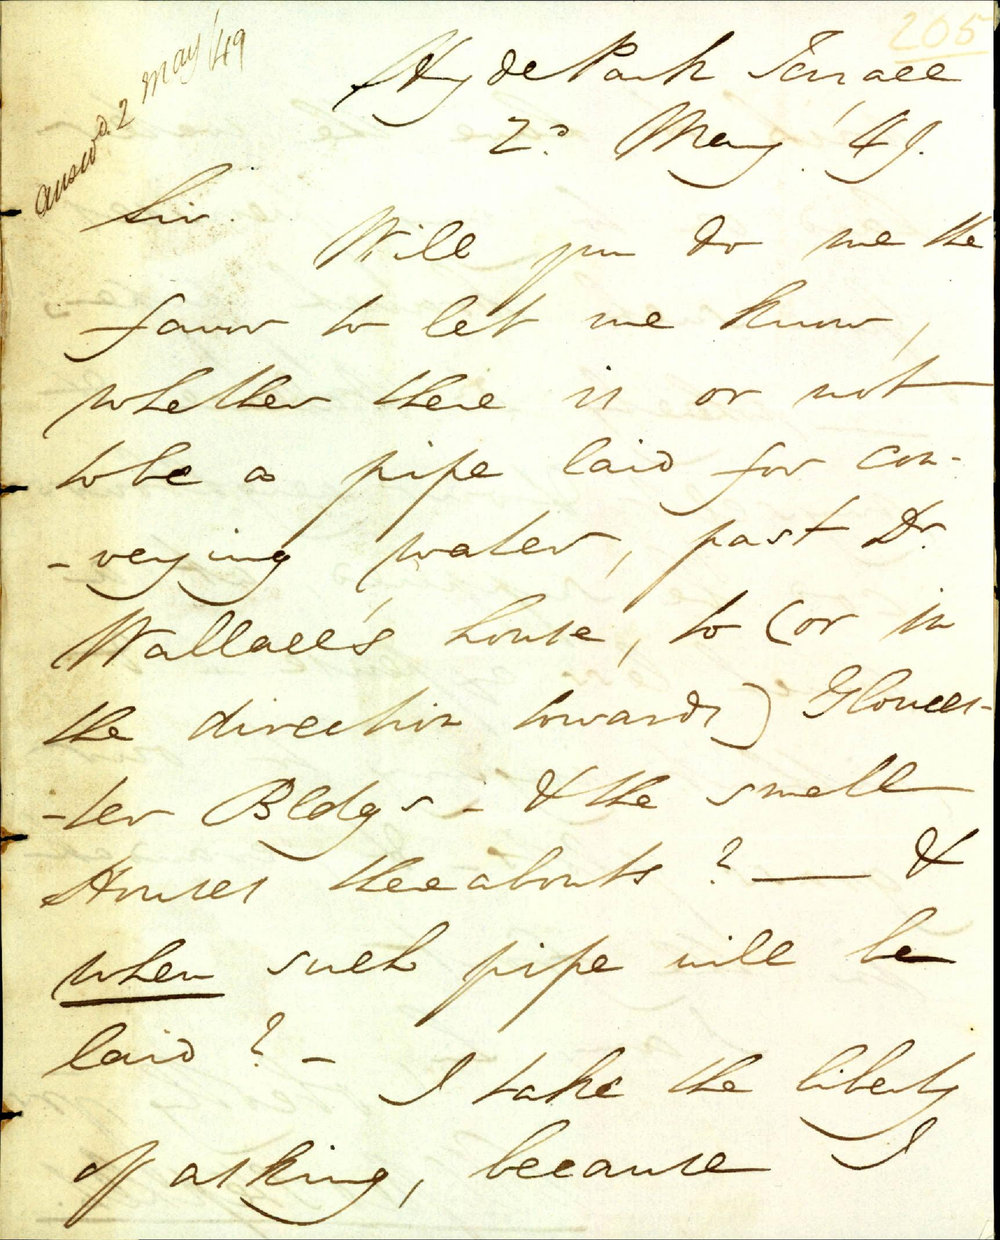 205
answd. 2 May '49
Hyde Park Terrace
2d. May '49.
Sir.
Will you do me the
favor to let me know,
whether there is or not
to be a pipe laid for con-
-veying water, past Dr.
Wallace's house, to (or in
the direction towards) Glouces-
-ter Bldgs - & the small
Houses thereabouts? — &
when such pipe will be
laid? -
I take the liberty
of asking, because I